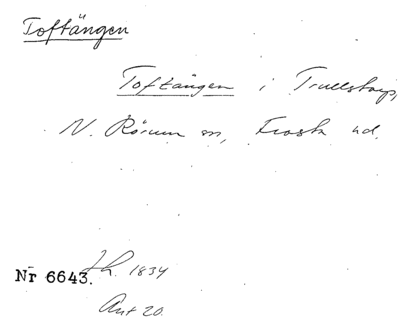 Toftängen
Toftängen i Trullstorp,
N. Rörum sn, Frosta hd.
Nr 6643. Lh. 1834
Ant 20.